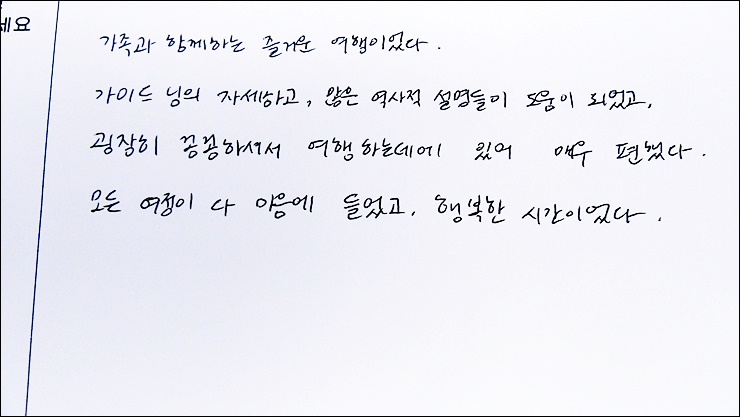 세요
가족과 함께하는 즐거운 여행이었다.
가이드 님의 자세하고, 많은 역사적 설명들이 도움이 되었고,
굉장히 꼼꼼하셔서 여행하는데에 있어 매우 편했다.
모든 여정이 다 마음에 들었고, 행복한 시간이었다.